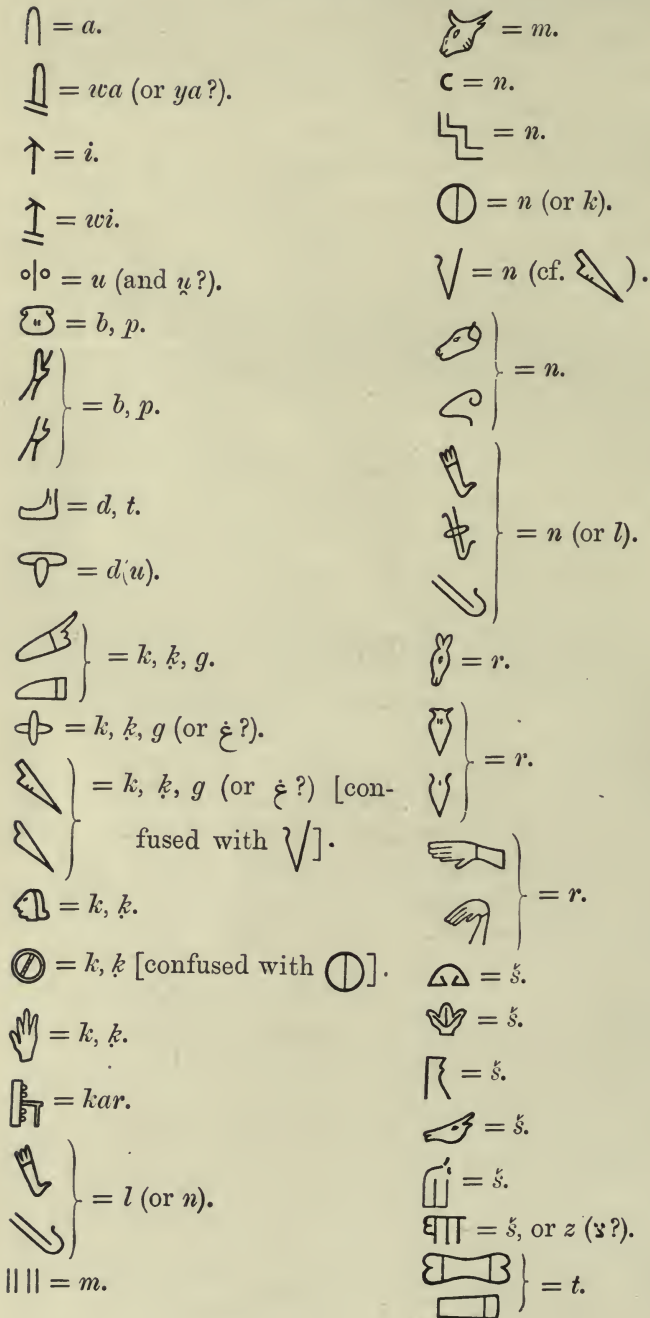 = a.
= wa (or ya?).
= i.
= wi.
= u (and u̯?).
= b, p.
= b, p.
= d, t.
= d(u).
= k, ḳ, g.
= k, ḳ, g (or غ?).
= k, ḳ, g (or غ?) [con-
fused with ].
= k, ḳ.
= k, ḳ [confused with ].
= k, ḳ.
= kar.
= l (or n).
= m.
= m.
= n.
= n.
= n (or k).
= n (cf. ).
= n.
= n (or l).
= r.
= r.
= r.
= š.
= š.
= š.
= š.
= š.
= š, or z (צ?).
= t.